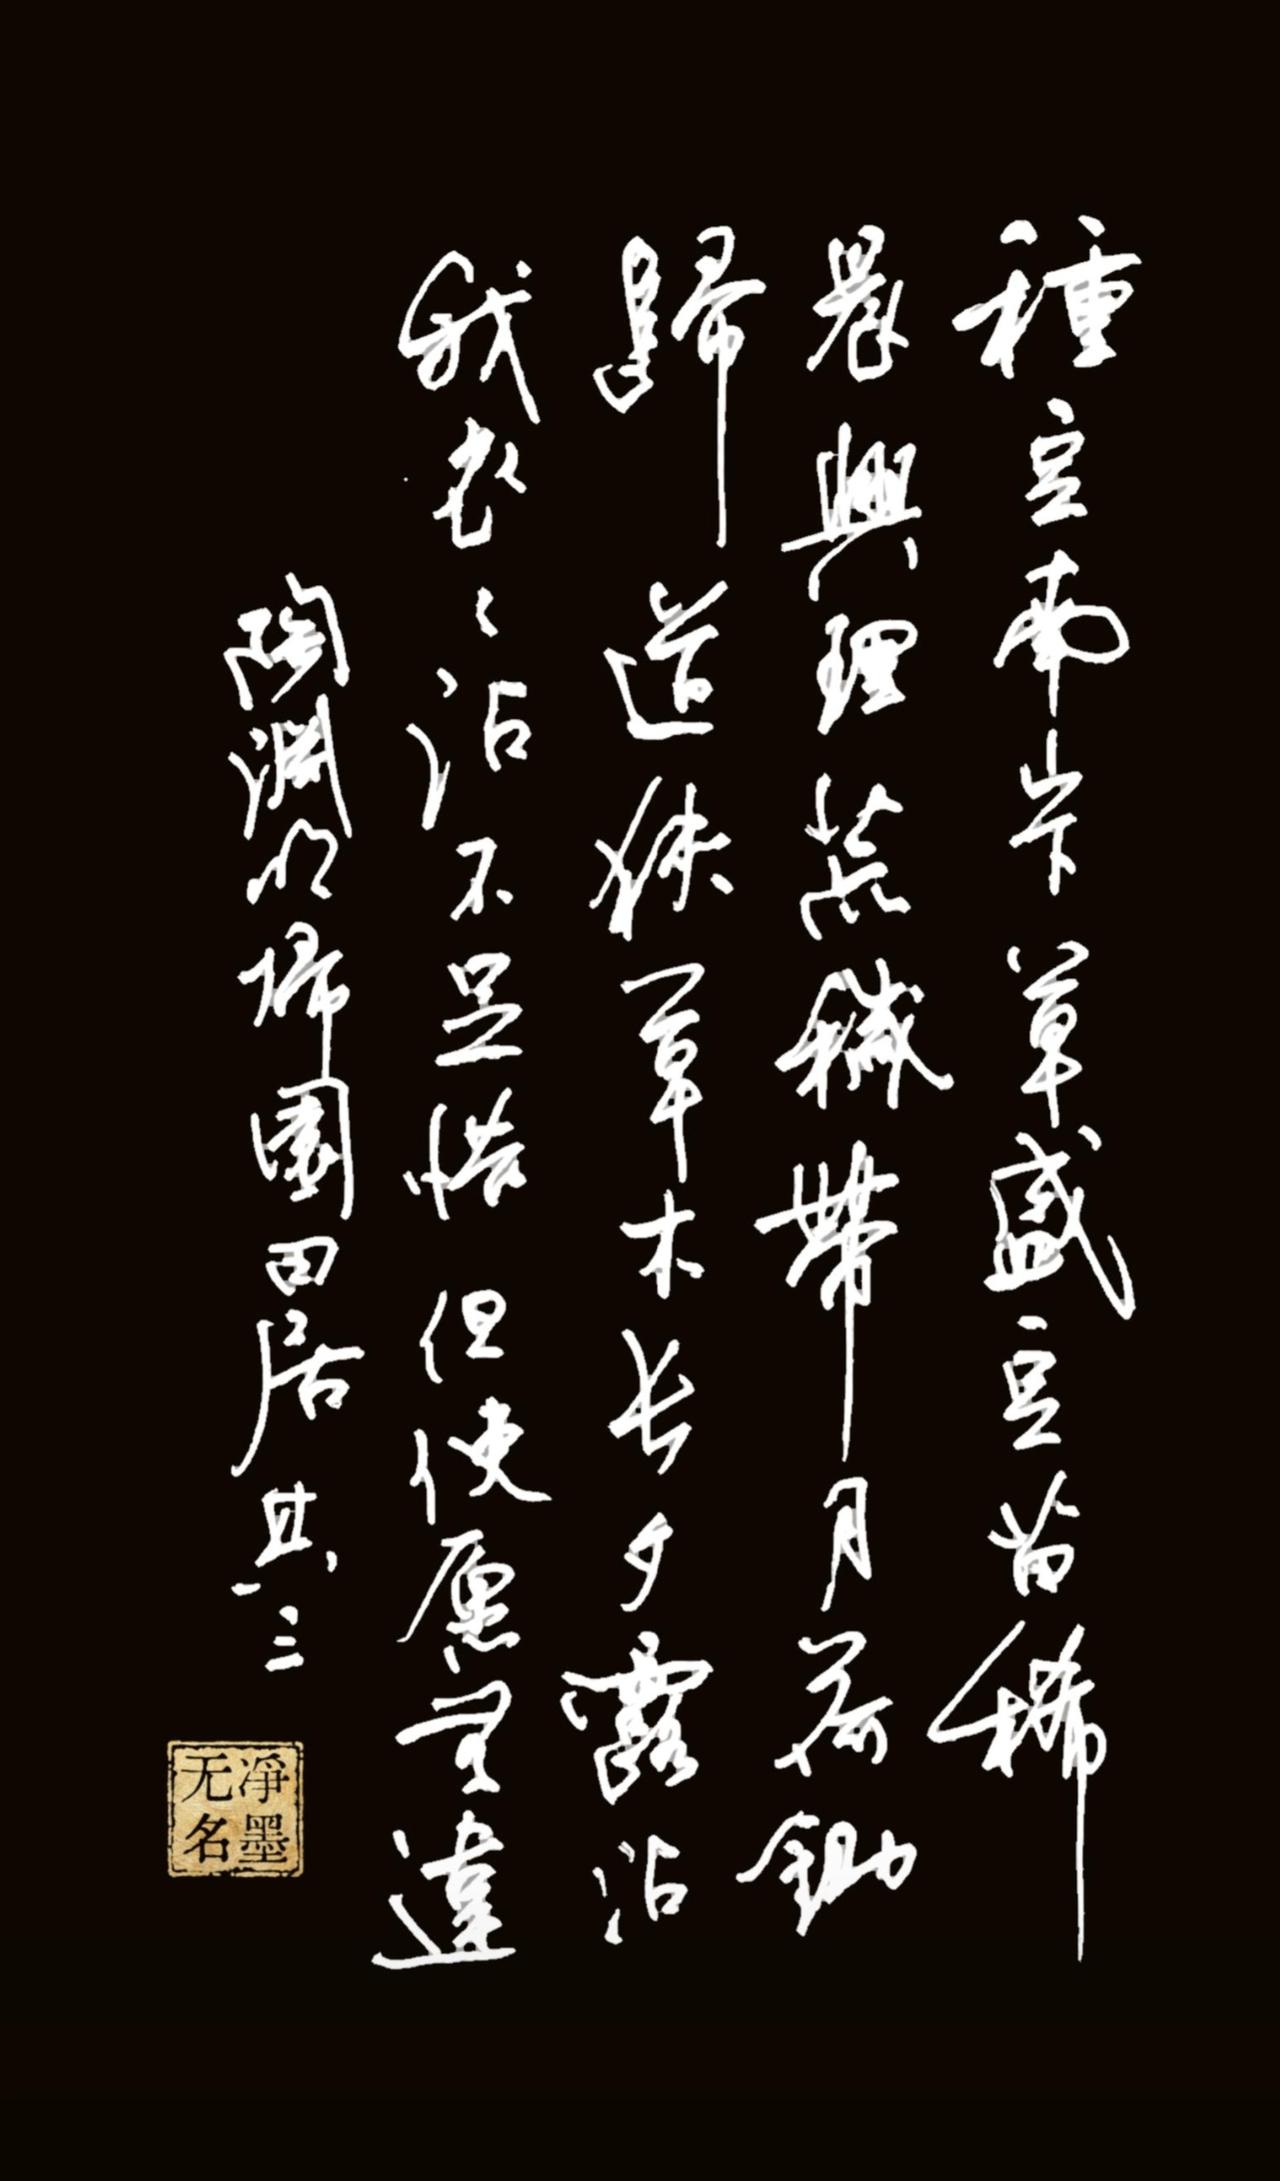 種豆南山下草盛豆苗稀
晨興理荒穢帶月荷鋤
歸道狭草木长夕露沾
我衣〻沾不足惜但使愿无違
陶淵明歸園田居其三
凈墨
无名